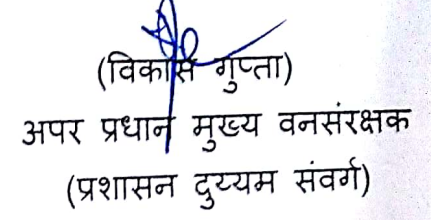 (विकास गुप्ता)
अपर प्रधान मुख्य वनसंरक्षक
(प्रशासन दुय्यम संवर्ग)